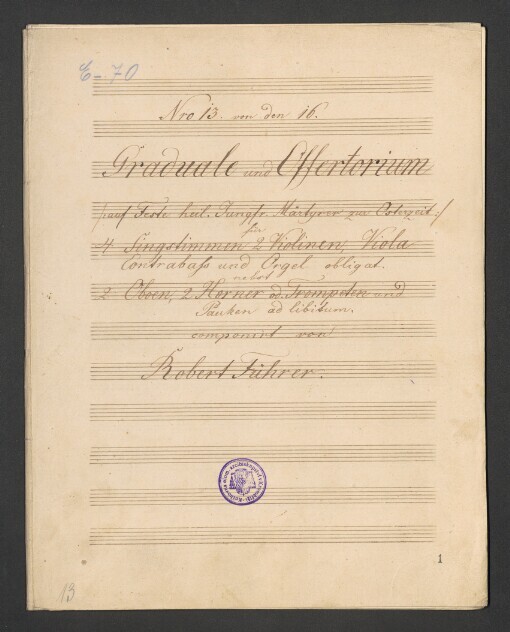 E-70
Nro 13. von den 16.
Graduale und Offertorium
/:auf Feste heil. Jungfr. Märtyrer zur Osterzeit:/
für
4 Singstimmen 2 Violinen, Viola
Contrabaß und Orgel obligat.
nebst
2 Oboen, 2 Hörner od. Trompeten und
Pauken ad libitum.
componirt von
Robert Führer.
1
13